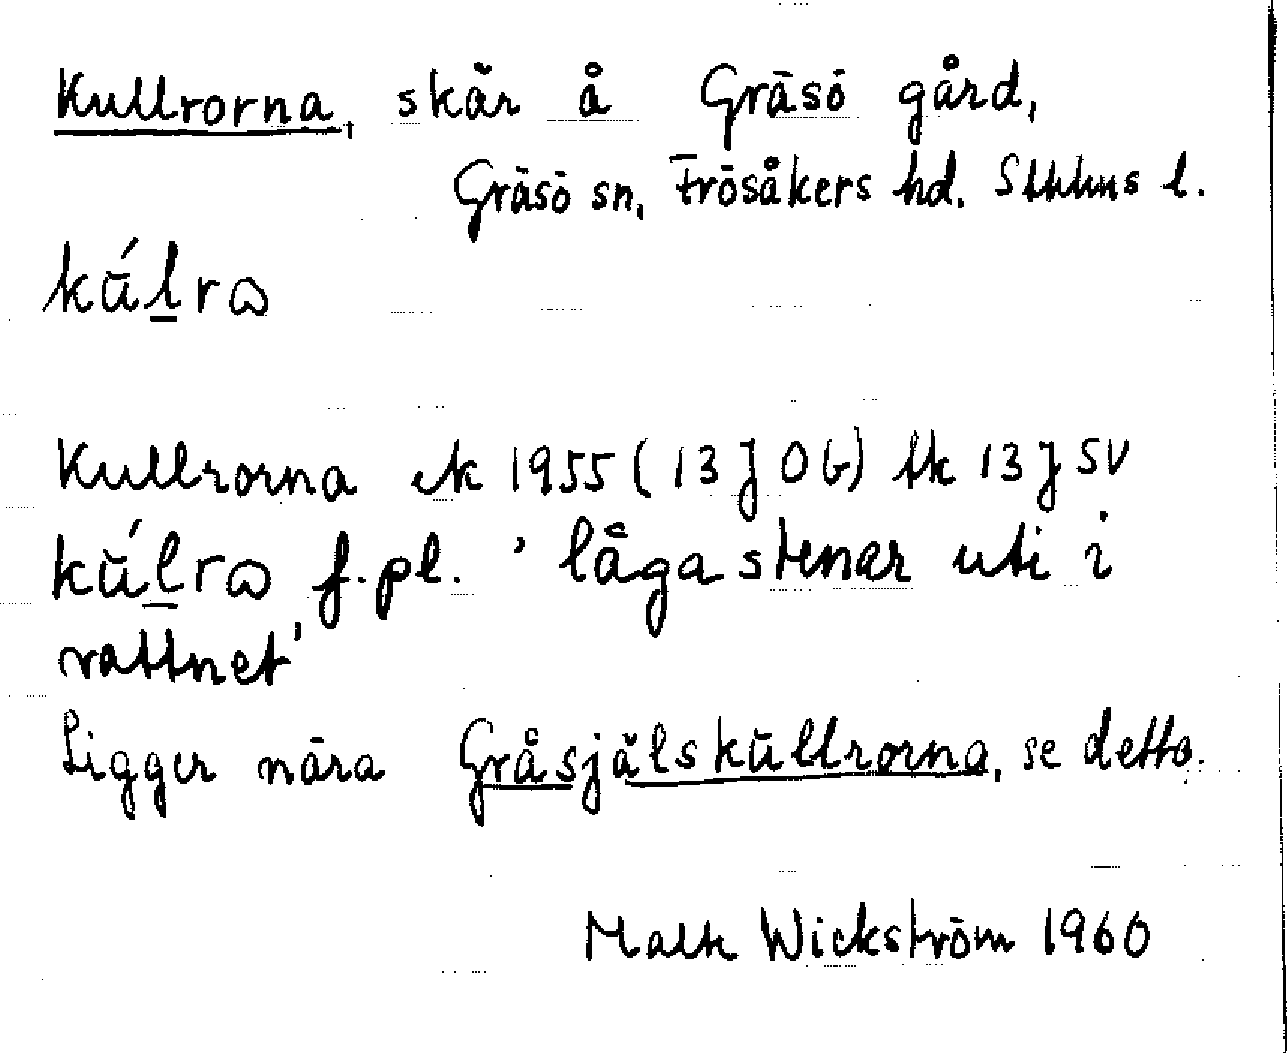 Kullrorna, skär å Gräsö gård,
Gräsö sn, Frösåkers hd. Sthlms l.
kúl̲rω
Kullrorna ek 1955 (13 J 0b) tk 13 J SV
kúl̲rω f.pl. 'låga stenar uti i
vattnet'
Ligger nära Gråsjälskullrorna, se detta.
Wickström 1960